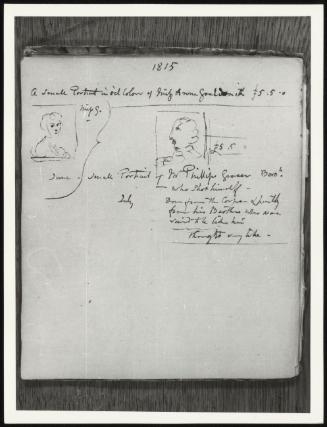 1815
A small Portrait in oil Colour of Miss Anne £5.5.0
Miss G.
£5.5
June - small Portrait of Mr Phillip
who shot himself -
July Done from the Corpse & partly
from his Brothers who were
said to be like him
thought very like -